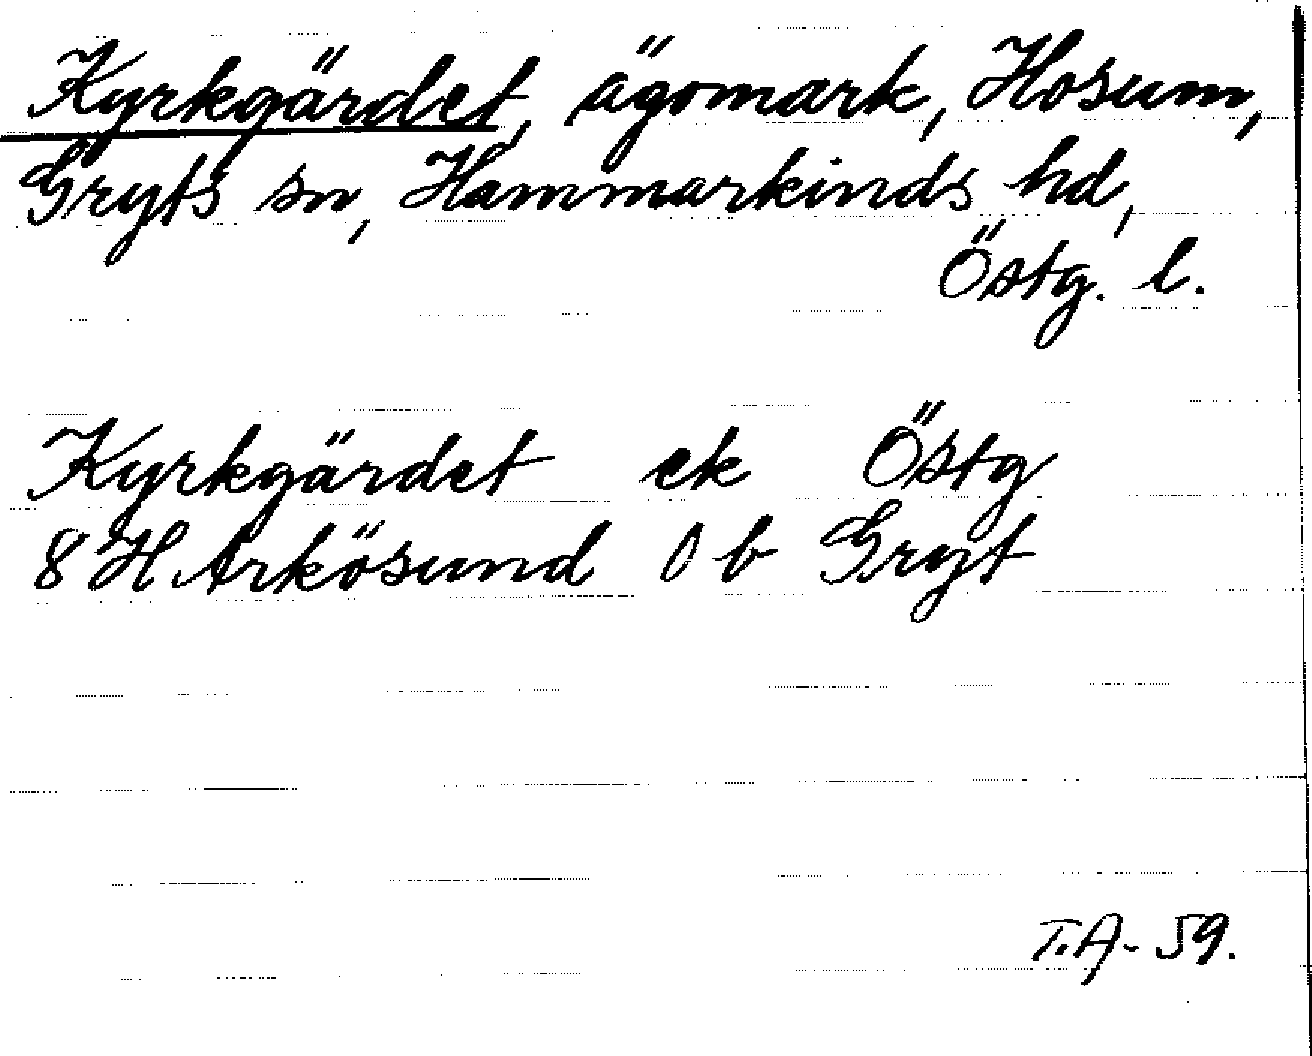 Kyrkgärdet, ägomark, Hosum,
Gryts sn, Hammarkinds hd,
Östg. l.
Kyrkgärdet ek Östg
8 H Arkösund 0 b Gryt
T.A-59.